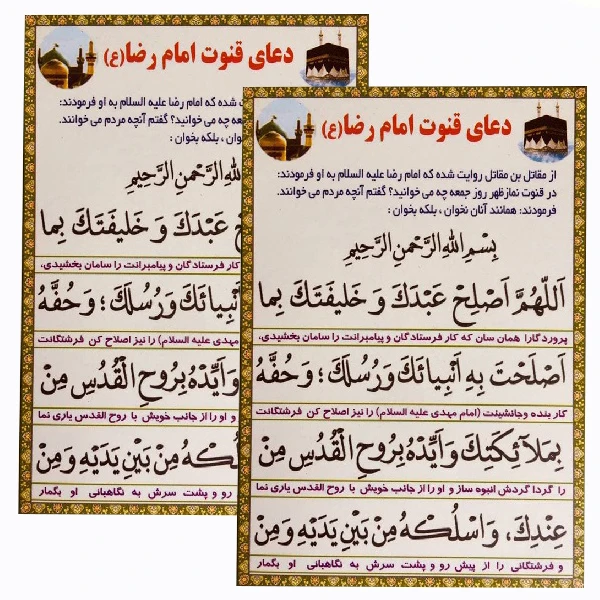 دعای قنوت امام رضا(ع)
شده که امام رضا علیه السلام به او فرمودند:
چه می خوانید؟ گفتم آنچه مردم می خوانند.
، بلکه بخوان :
اللهِ الرَّحْمنِ الرَّحِیمِ
عَبْدَكَ وَ خَلیفَتَكَ بِما
کار فرستادگان و پیامبرانت را سامان بخشیدی،
اَنْبِیائَكَ وَ رُسُلَكَ؛ وَ حُفَّهُ
مهدی علیه السلام) را نیز اصلاح کن فرشتگانت
وَ اَیِّدْهُ بِرُوحِ الْقُدُسِ مِنْ
و او را از جانب خویش با روح القدس یاری نما
مِنْ بَیْنِ یَدَیْهِ وَ مِنْ
رو و پشت سرش به نگاهبانی او بگمار
دعای قنوت امام رضا(ع)
از مقاتل بن مقاتل روایت شده که امام رضا علیه السلام به او فرمودند:
در قنوت نمازظهر روز جمعه چه می خوانید؟ گفتم آنچه مردم می خوانند.
فرمودند: همانند آنان نخوان ، بلکه بخوان :
بِسْمِ اللهِ الرَّحْمنِ الرَّحِیمِ
اَللّهُمَّ اَصْلِحْ عَبْدَكَ وَ خَلیفَتَكَ بِما
پروردگارا همان سان که کار فرستادگان و پیامبرانت را سامان بخشیدی،
اَصْلَحْتَ بِهِ اَنْبِیائَكَ وَ رُسُلَكَ؛ وَ حُفَّهُ
کار بنده و جانشینت (امام مهدی علیه السلام) را نیز اصلاح کن فرشتگانت
بِمَلآئِکَتِكَ وَ اَیِّدْهُ بِرُوحِ الْقُدُسِ مِنْ
را گردا گردش انبوه ساز و او را از جانب خویش با روح القدس یاری نما
عِنْدِكَ، وَ اسْلُکْهُ مِنْ بَیْنِ یَدَیْهِ وَ مِنْ
و فرشتگانی را از پیش رو و پشت سرش به نگاهبانی او بگمار